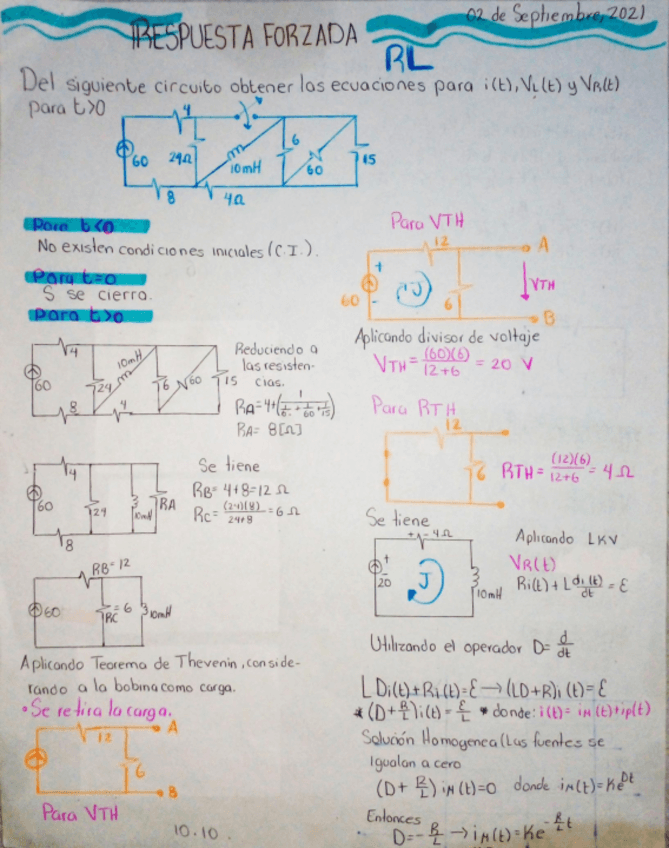 02 de Septiembre, 2021
RESPUESTA FORZADA
RL
Del siguiente circuito obtener las ecuaciones para i(t), VL(t) y VR(t)
para t>0
4
60
24Ω
10mH
6
60
15
8
4Ω
Para t<0
No existen condiciones iniciales (C.I.).
Para t=0
S se cierra.
Para t>0
4
60
24
10mH
6
60
15
8
4
Reduciendo a
las resisten-
cias.
RA=4+(1/(1/6+1/60+1/15))
RA= 8[Ω]
4
60
24
10mH
RA
8
Se tiene
RB= 4+8=12 Ω
RC= (24)(8)/24+8 = 6 Ω
RB=12
60
RC=6
10mH
Aplicando Teorema de Thevenin, conside-
rando a la bobina como carga.
•Se retira la carga.
12
A
6
B
Para VTH
10.10.
Para VTH
12
A
+
60
-
J
6
VTH
B
Aplicando divisor de voltaje
VTH= (60)(6)/12+6 = 20 V
Para RTH
12
6
RTH= (12)(6)/12+6 = 4 Ω
Se tiene
+ - 4Ω
+
20
-
J
10mH
Aplicando LKV
VR(t)
Ri(t)+L di(t)/dt = Ɛ
Utilizando el operador D= d/dt
LDi(t)+Ri(t)=Ɛ → (LD+R)i(t)=Ɛ
* (D+R/L)i(t)=Ɛ/L * donde: i(t)= iH(t)+ip(t)
Solución Homogenea (Las fuentes se
igualan a cero
(D+ R/L) iH(t)=0 donde iH(t)=Ke^Dt
Entonces
D=-R/L → iH(t)=Ke^-R/L t